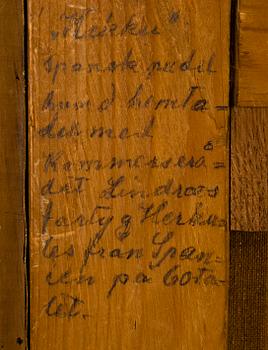 "Mirku".
Spansk pudel
hund hemta-
des med
Kommersera-
det Lindroos
fartyg Herku-
les från Span-
ien på 60ta-
let.